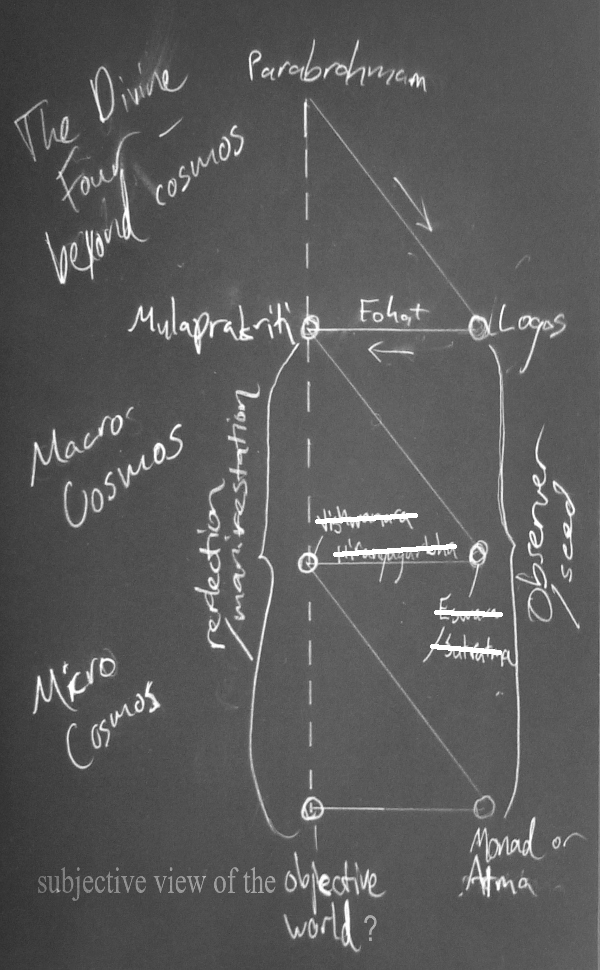 Parabrahmam
The Divine
Four –
beyond cosmos
Mulaprakriti
Fohat
Logos
Macros
Cosmos
reflection
/manifestation
Observer
/seed
Micro
Cosmos
Monad or
Atma
subjective view of the objective
world?